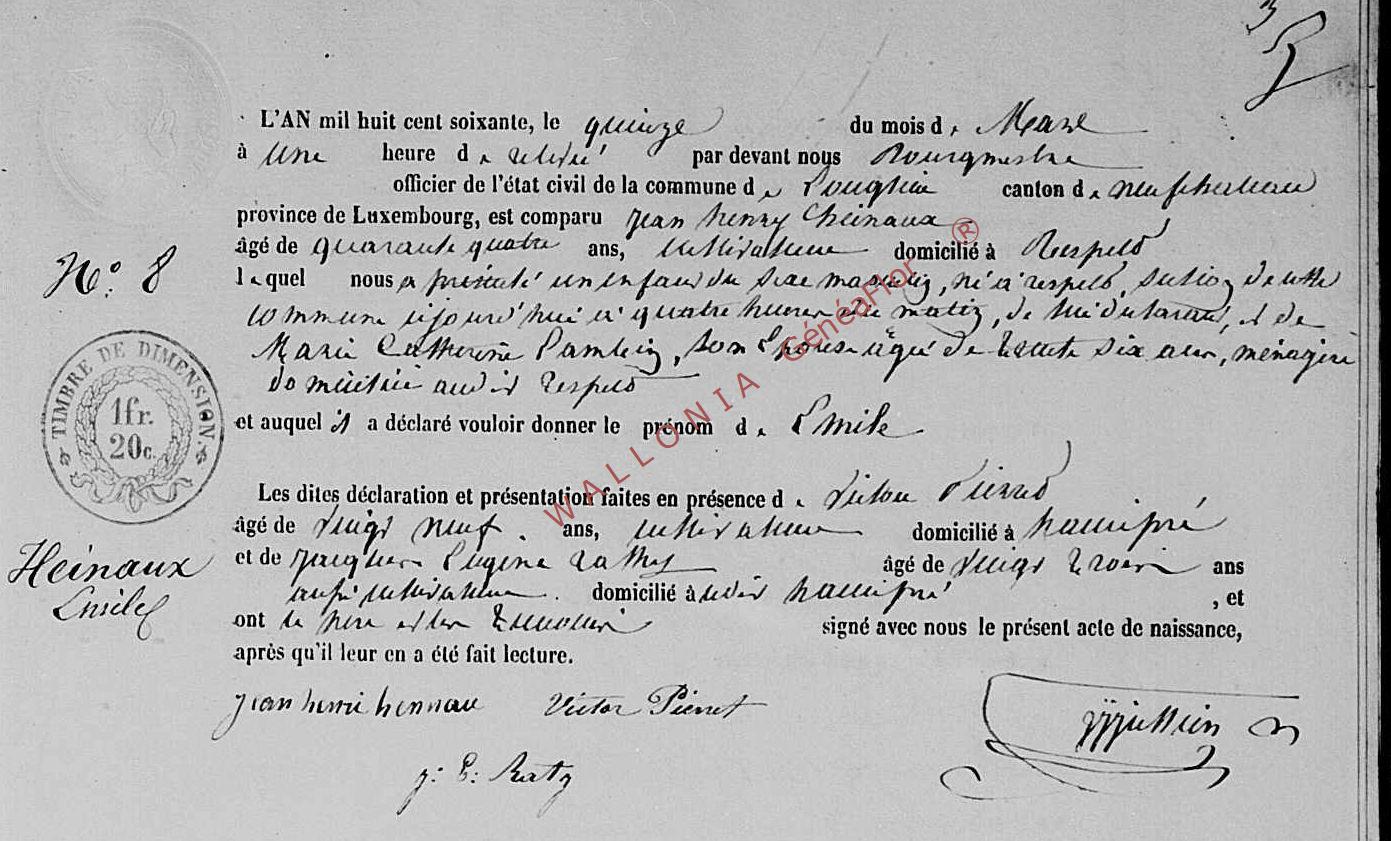 L'AN mil huit cent soixante, le quinze du mois de Mars
à une heure de relevée par devant nous Bourgmestre
officier de l'état civil de la commune de Longlier canton de neufchateau
province de Luxembourg, est comparu Jean henry heinaux
âgé de quarante quatre ans, cultivateur domicilié à Respelt
lequel nous a présenté un enfant du sexe masculin, né à respelt, section de cette
commune aujourd'hui à quatre heures du matin, de lui déclarant, et de
Marie Catherine Lambin, son Epouse agée de trente six ans, ménagère
domiciliée audit respelt
et auquel il a déclaré vouloir donner le prénom de Emile
Les dites déclaration et présentation faites en présence de Victor Pierret
âgé de vingt neuf ans, cultivateur domicilié à hamipré
et de Jacques Eugène âgé de vingt trois ans
aussi cultivateur domicilié à audit hamipré, et
ont le père et les témoins signé avec nous le présent acte de naissance,
après qu'il leur en a été fait lecture.
Jean henri hennau Victor Pierret
J: E: Ratz
No. 8
TIMBRE DE DIMENSION.
1fr.
20c.
Heinaux
Emile
WALLONIA GénéaFlor ®